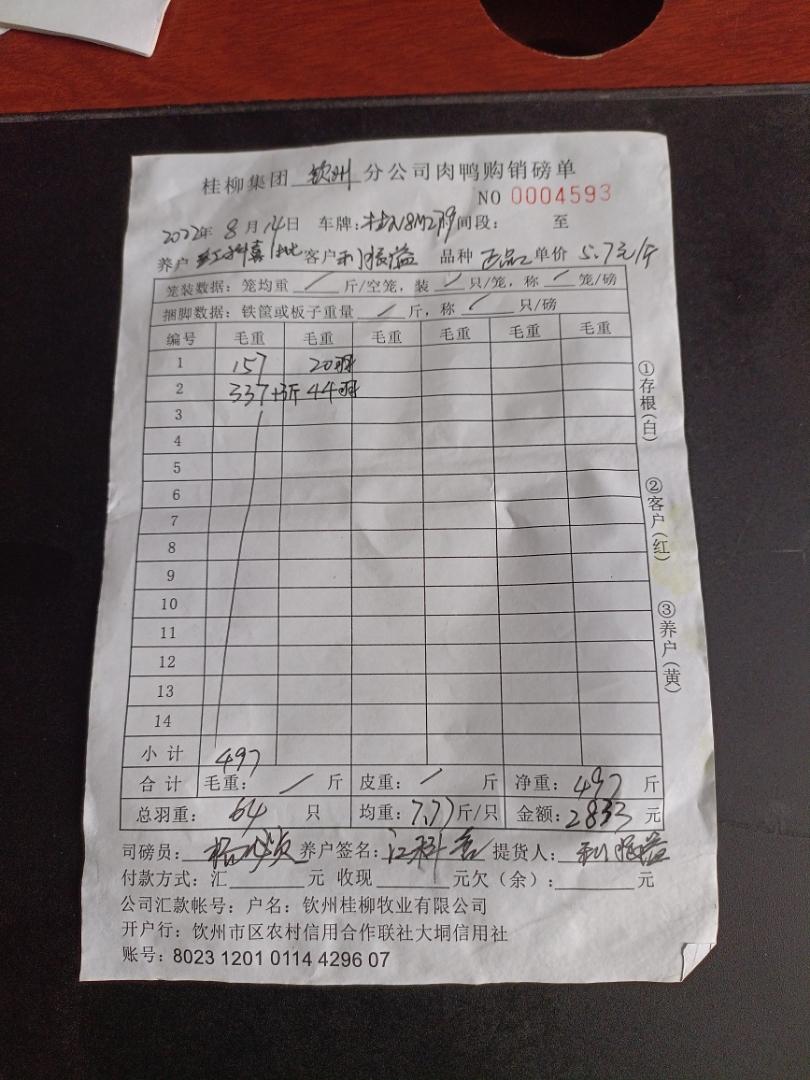 桂柳集团 钦州 分公司肉鸭购销磅单
NO 0004593
2022年 8月 14日 车牌: 桂N8M239 时间段: 至
养户 客户 利振益 品种 正品 单价 5.7元/斤
笼装数据: 笼均重 / 斤/空笼, 装 / 只/笼, 称 / 笼/磅
捆脚数据: 铁筐或板子重量 / 斤, 称 / 只/磅
编号 毛重 毛重 毛重 毛重 毛重 毛重
1 157 20羽
2 337+3斤 44羽
3
4
5
6
7
8
9
10
11
12
13
14
小计 497
合计 毛重: / 斤 皮重: / 斤 净重: 497 斤
总羽重: 64 只 均重: 7.77斤/只 金额: 2833 元
司磅员: 养户签名: 江科喜 提货人: 利振益
付款方式: 汇 元 收现 元欠(余): 元
公司汇款帐号: 户名: 钦州桂柳牧业有限公司
开户行: 钦州市区农村信用合作联社大垌信用社
账号: 8023 1201 0114 4296 07
①存根(白)
②客户(红)
③养户(黄)